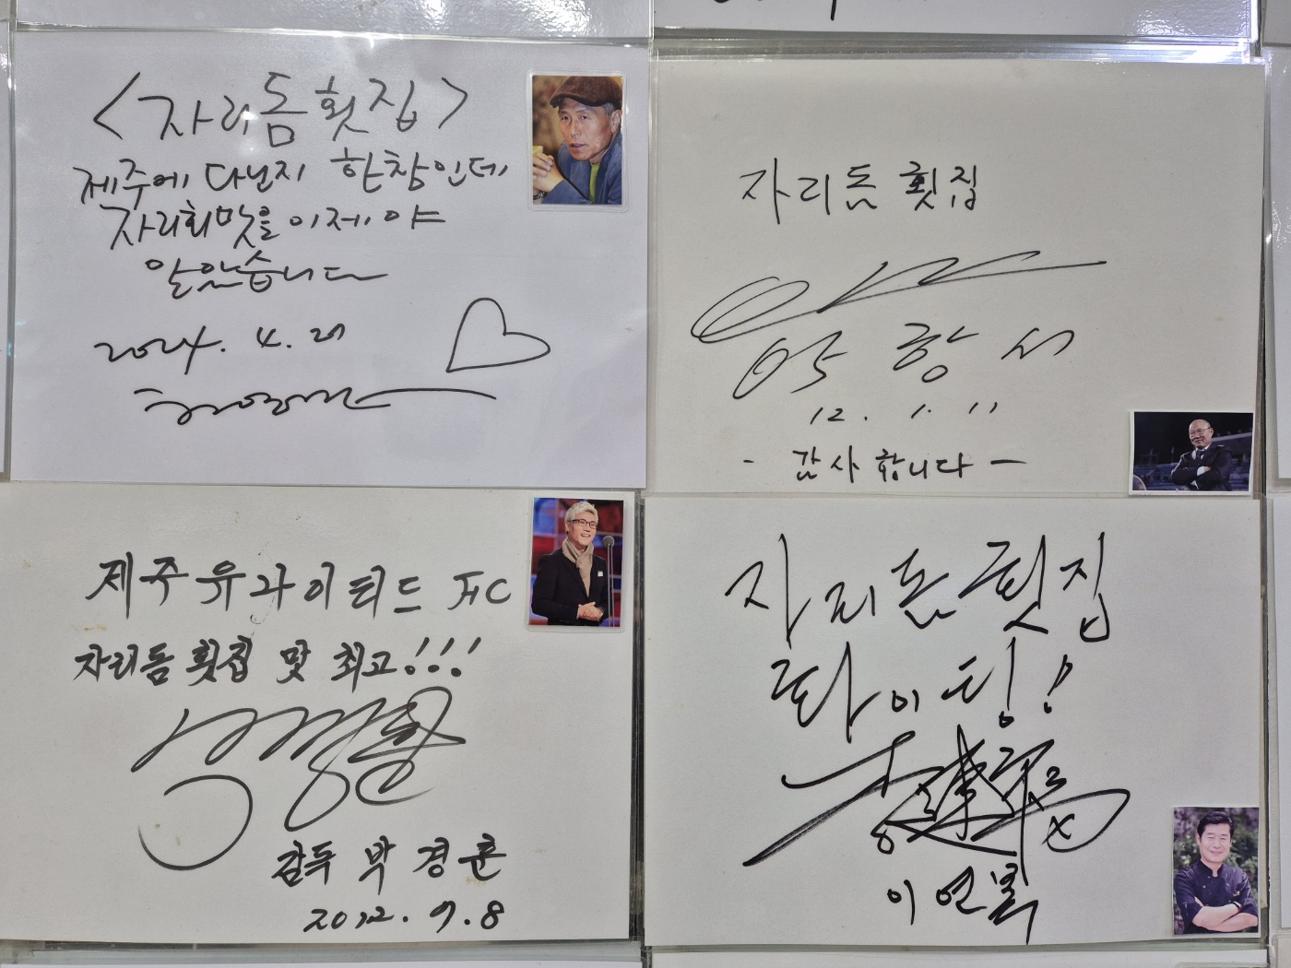 <자리돔횟집>
제주에 다닌지 한참인데
자리회맛을 이제야
알았습니다
2024. 4. 21
자리돔 횟집
박 항 서
12. 1. 11
- 감사합니다 -
제주유나이티드 FC
자리돔 횟집 맛 최고!!!
감독 박경훈
2012. 9. 8
자리돔횟집
화이팅!
이연복